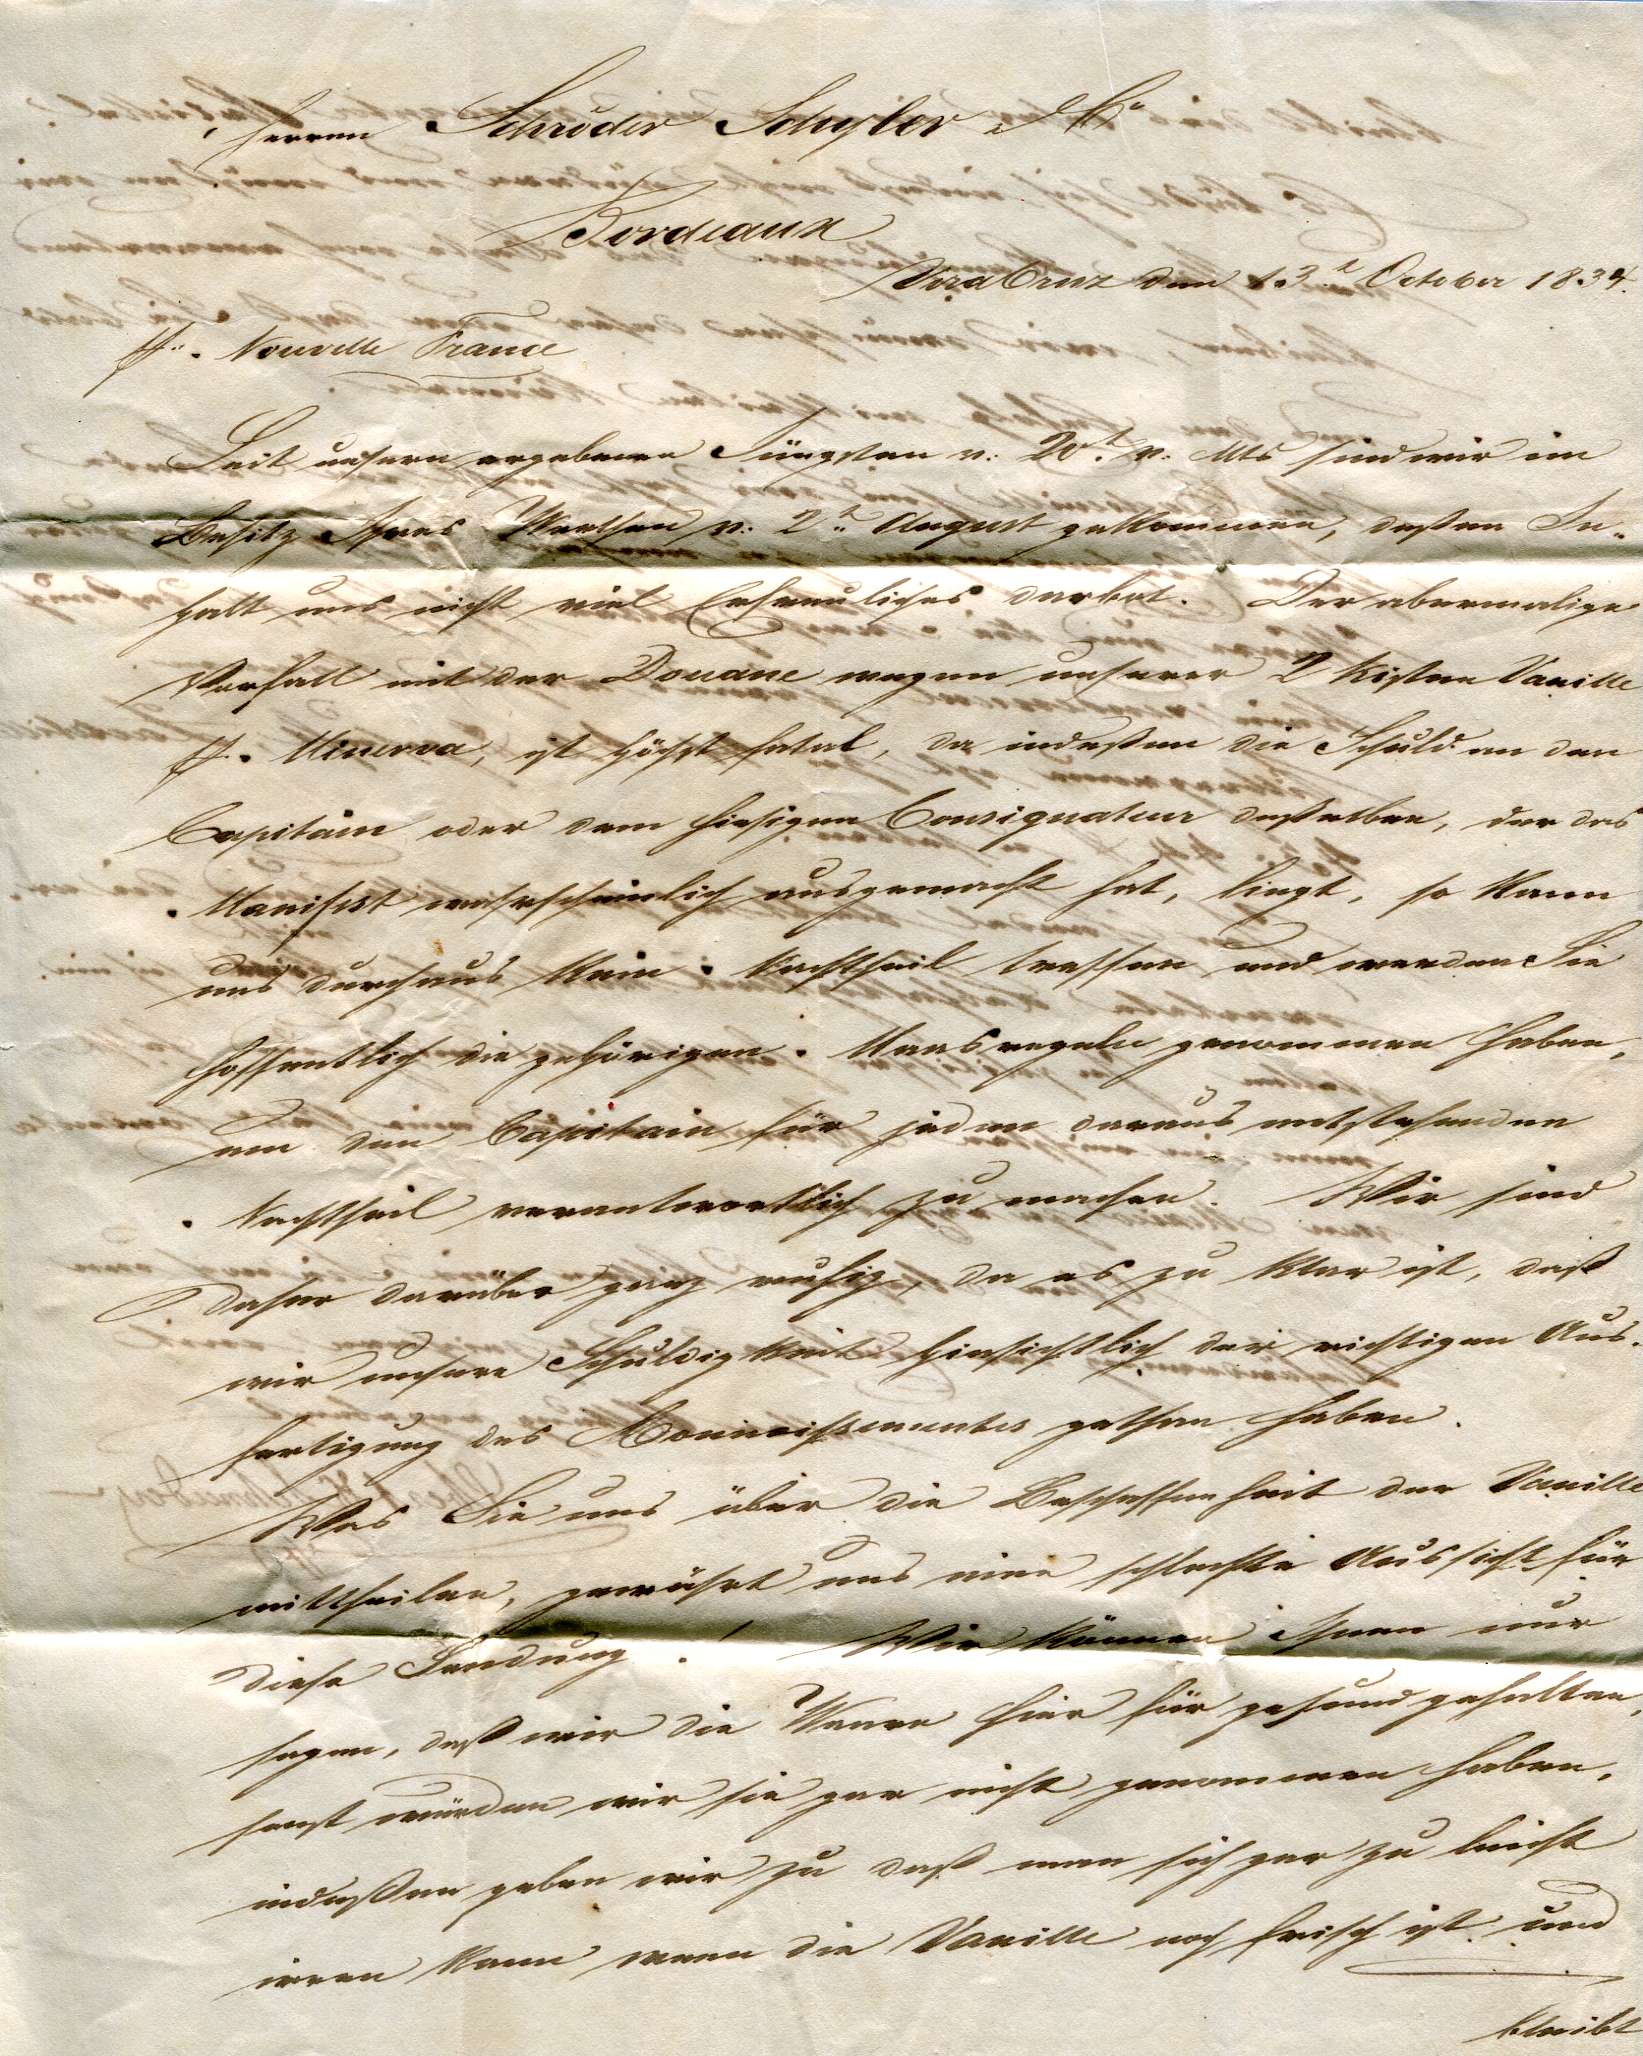 Herren Schröder Schyler & Co
Bordeaux
Vera Cruz den 13t October 1834.
pr. Nouvelle France
Seit unsern ergebenen Jüngsten v: 20t v: Mts sind wir im
Besitz Ihres Werthen v: 2t August gekommen, deßen In-
halt uns nicht viel Erfreuliches darbot. Der abermalige
Vorfall mit der Douane wegen unserer 2 Kisten Vanille
pr. Minerva, ist höchst fatal, da indeßen die Schuld an den
Capitain oder dem hiesigen Consignateur deßelben, der das
Manifest wahrscheinlich ausgemacht hat, liegt, so kann
uns durchaus kein Nachtheil treffen und werden Sie
hoffentlich die gehörigen Maasregeln genommen haben,
um den Capitain für jeden daraus entstehenden
Nachtheil verantwortlich zu machen. Wir sind
daher darüber ganz ruhig, da es zu klar ist, daß
wir unsere Schuldigkeit hinsichtlich der richtigen Aus-
fertigung des Connoissementes gethan haben.
Was Sie uns über die Beschaffenheit der Vanille
mittheilen, gewährt uns eine schlechte Aussicht für
diese Sendung! Wir können Ihnen nur
sagen, daß wir die Waare hier für gesund gehalten,
sonst würden wir sie gar nicht genommen haben,
indeßen geben wir zu daß man sich gar zu leicht
irren kann wenn die Vanille noch frisch ist und
bleibt